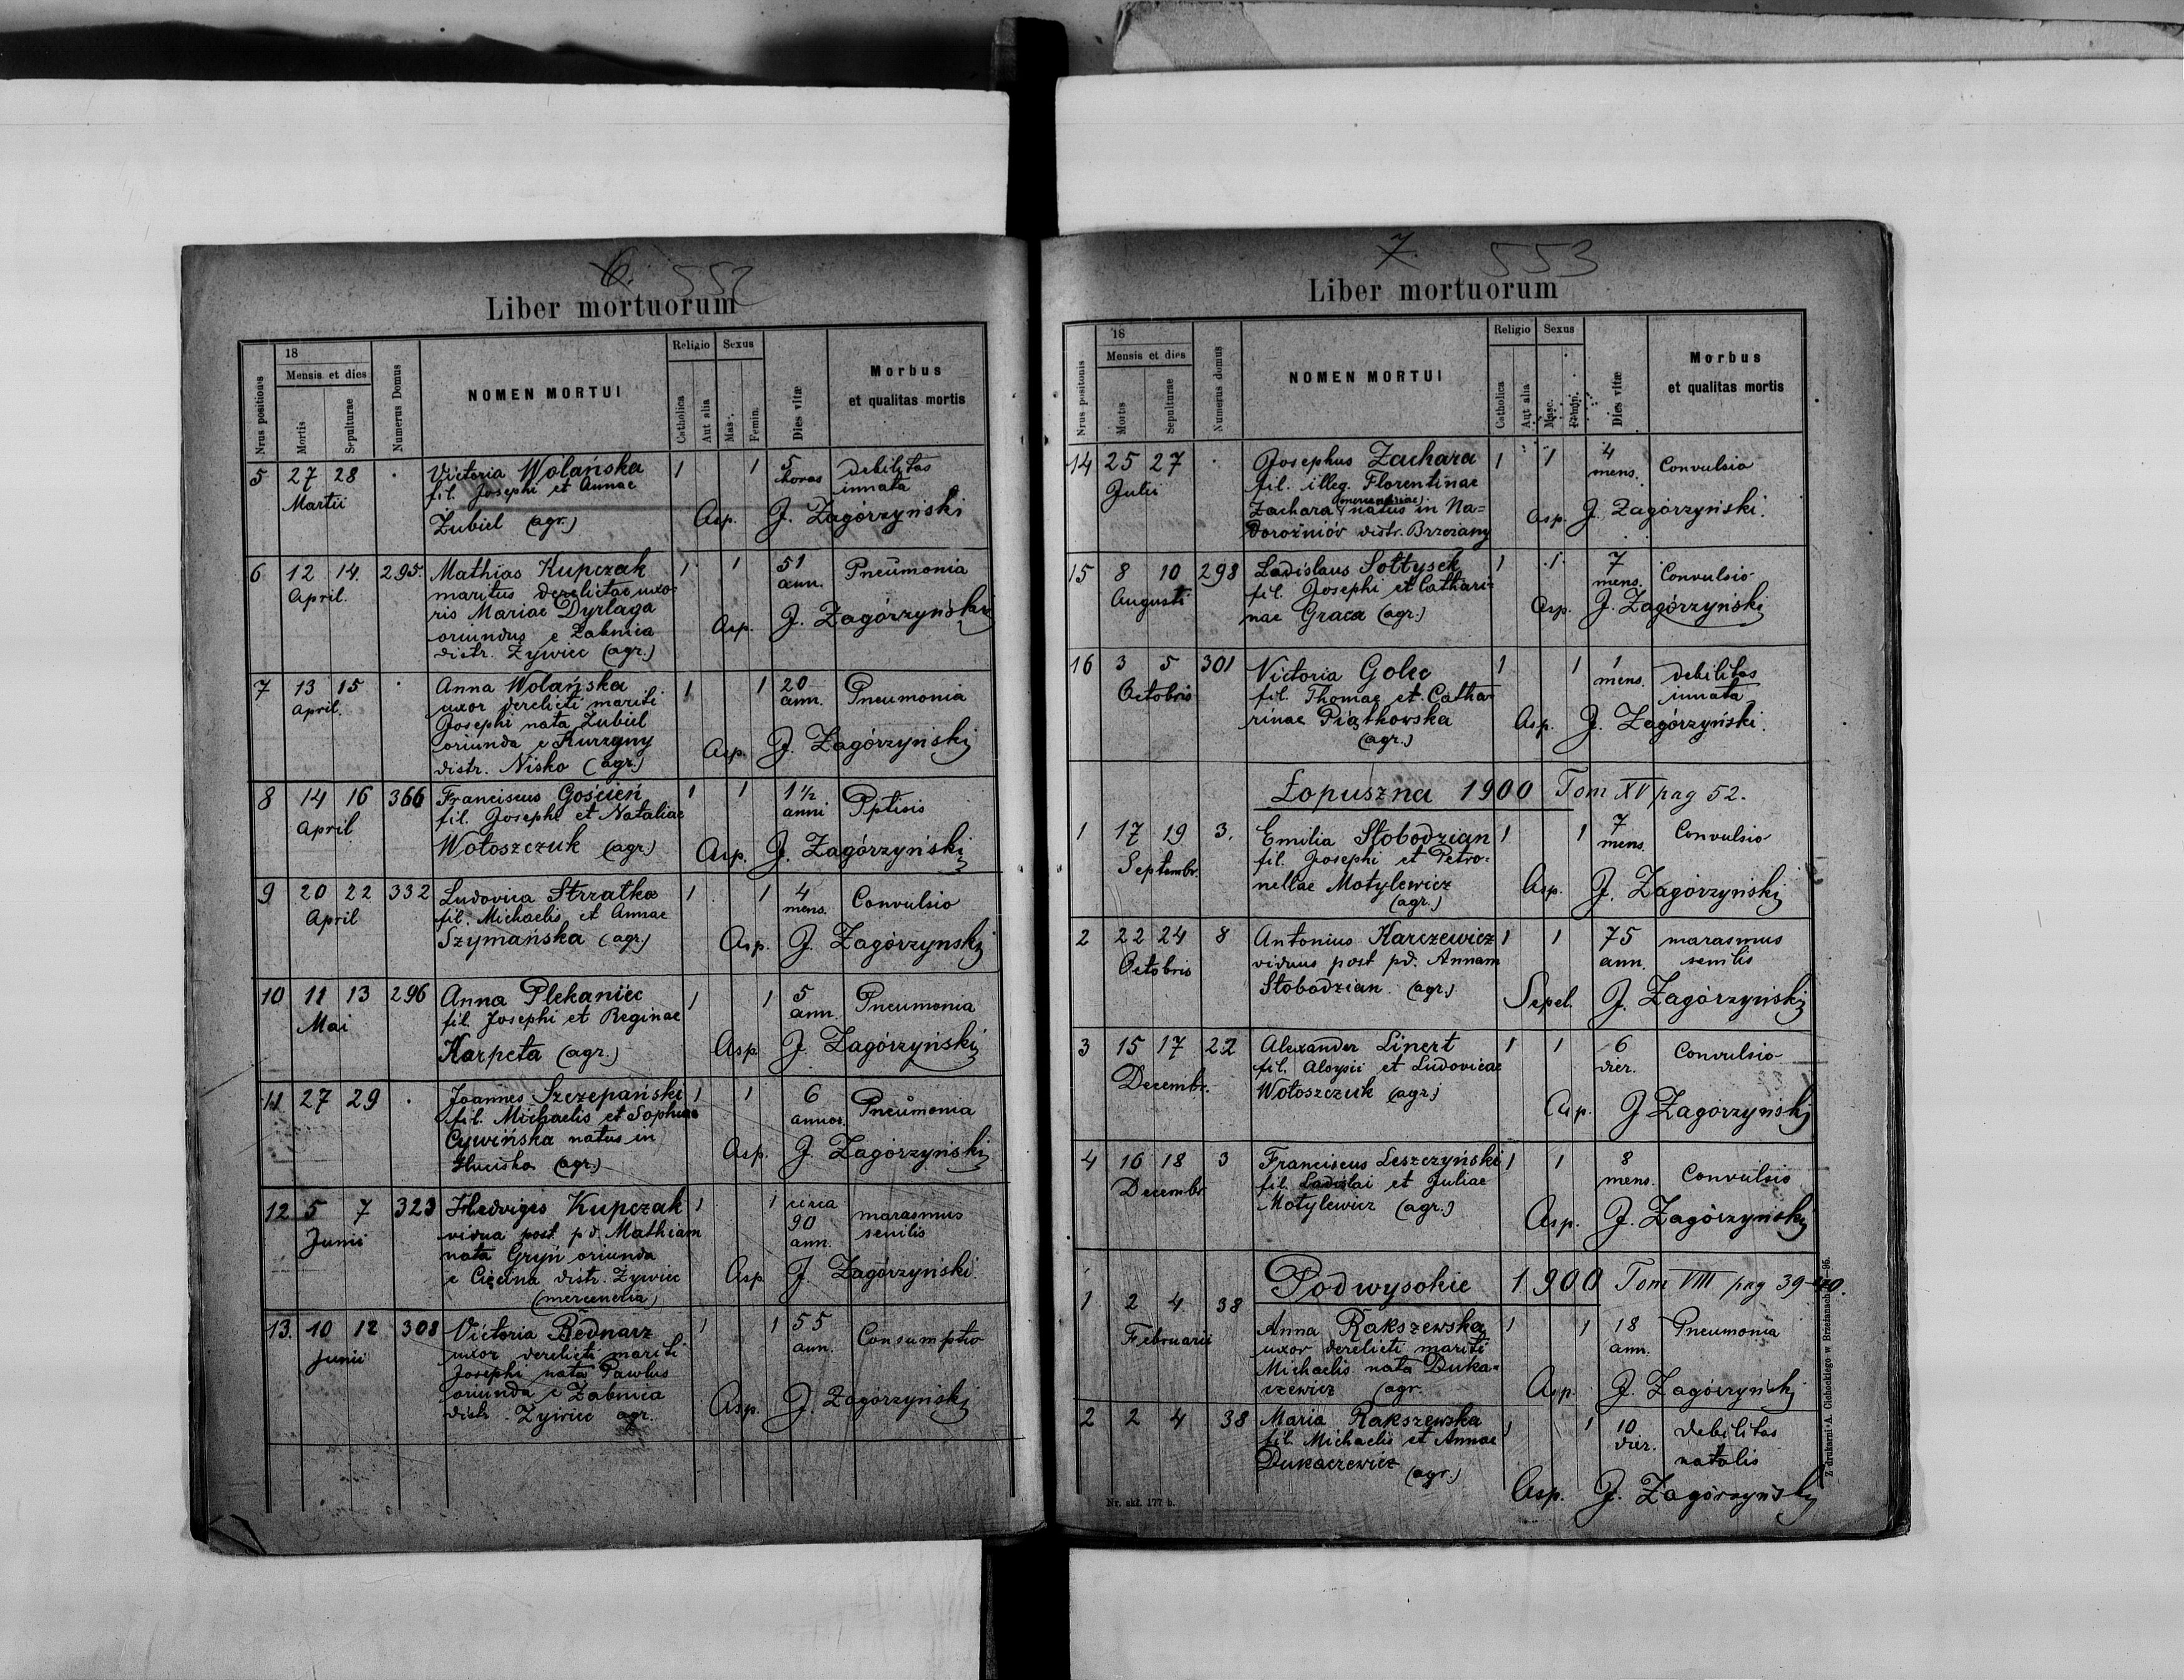 6. 552
Liber mortuorum
Nrus positionis
18
Mensis et dies
Mortis
Sepulturae
Numerus Domus
NOMEN MORTUI
Religio
Catholica
Aut alia
Sexus
Mas.
Femin.
Dies vitæ
Morbus
et qualitas mortis
5 27 28 · Victoria Wolańska 1 1 5 debilitas
Martii fil. Josephi et Annae horas innata
Zubiel (agr.) Asp. J. Zagórzyński
6 12 14. 295. Mathias Kupczak 1 1 51 Pneumonia
April. maritus derelictae uxo- ann.
ris Mariae Dyrlaga
oriundus e Żabnica Asp. J. Zagórzyński
distr. Żywiec (agr.)
7 13 15 · Anna Wolańska 1 1 20 Pneumonia
April. uxor derelicti mariti ann.
Josephi nata Zubiel
oriunda e Kurzyny Asp. J. Zagórzyński
distr. Nisko (agr.)
8 14 16 366 Franciscus Goścień 1 1 1½ Ptisis
April fil. Josephi et Nataliae anni
Wołoszczuk (agr.) Asp. J. Zagórzyński
9 20 22 332 Ludovica Strzałka 1 1 4 Convulsio
April fil. Michaelis et Annae mens.
Szymańska (agr.) Asp. J. Zagórzyński
10 11 13 296 Anna Plekaniec 1 1 5 Pneumonia
Mai fil. Josephi et Reginae ann.
Karpeta (agr.) Asp J. Zagórzyński
11 27 29 · Joannes Szczepański 1 1 6 Pneumonia
fil. Michaelis et Sophiae annos.
Cywińska natus in Asp. J. Zagórzyński
Hucisko (agr.)
12 5 7 323 Hedviges Kupczak 1 1 circa marasmus
Junii vidua post pd. Mathiam 90 senilis
nata Gryń oriunda ann.
e Cięcina distr. Żywiec Asp J. Zagórzyński
(mercenaria)
13. 10 12 308 Victoria Bednarz 1 1 55 Consumptio
Junii uxor derelicti mariti ann.
Josephi nata Pawlus
oriunda e Żabnica Asp. J. Zagórzyński
distr. Żywiec agr.
7. 553
Liber mortuorum
Nrus positonis
18
Mensis et dies
Mortis
Sepulturae
Numerus domus
NOMEN MORTUI
Religio
Catholica
Aut alia
Sexus
Masc.
Femin.
Dies vitæ
Morbus
et qualitas mortis
14 25 27 · Josephus Zachara 1 1 4 Convulsio
Julii fil. illeg. Florentinae mens.
Zachara (mercenariae) natus in Na=
dorożniów distr. Brzeżany Asp. J. Zagórzyński.
15 8 10 298 Ladislaus Sołtysek 1 1 7 Convulsio
Augusti fil. Josephi et Cathari- mens.
nae Graca (agr.) Asp. J. Zagórzyński
16 3 5 301 Victoria Golec 1 1 1 debilitas
Octobris fil. Thomae et Catha- mens. innata
rinae Piątkowska Asp. J. Zagórzyński.
(agr.)
Łopuszna 1900 Tom XV pag 52.
1 17 19 3. Emilia Słobodzian 1 1 7 Convulsio
Septembr. fil. Josephi et Petro- mens.
nellae Motylewicz Asp. J. Zagórzyński
(agr.)
2 22 24 8 Antonius Karczewicz 1 1 75 marasmus
Octobris viduus post pd. Annam ann. senilis
Słobodzian (agr.) Sepel. J. Zagórzyński
3 15 17 22 Alexander Linert 1 1 6 Convulsio
Decembr. fil. Aloysii et Ludovicae dier.
Wołoszczuk (agr.) Asp. J Zagórzyński
4 16 18 3 Franciscus Leszczyński 1 1 8 Convulsio
Decembr fil. Ladislai et Juliae mens.
Motylewicz (agr.) Asp. J. Zagórzyński
Podwysokie 1900 Tom VIII pag 39-40.
1 2 4 38 Anna Rakszewska 1 1 18 Pneumonia
Februarii uxor derelicti mariti ann.
Michaelis nata Duka=
czewicz (agr. Asp. J. Zagórzyński
2 2 4 38 Maria Rakszewska 1 1 10 Debilitas
fil. Michaelis et Annae dier. natalis
Dukaczewicz (agr.)
Asp. J. Zagórzyński
Nr. skł. 177 b.
Z drukarni A. Cichockiego w Brzeżanach